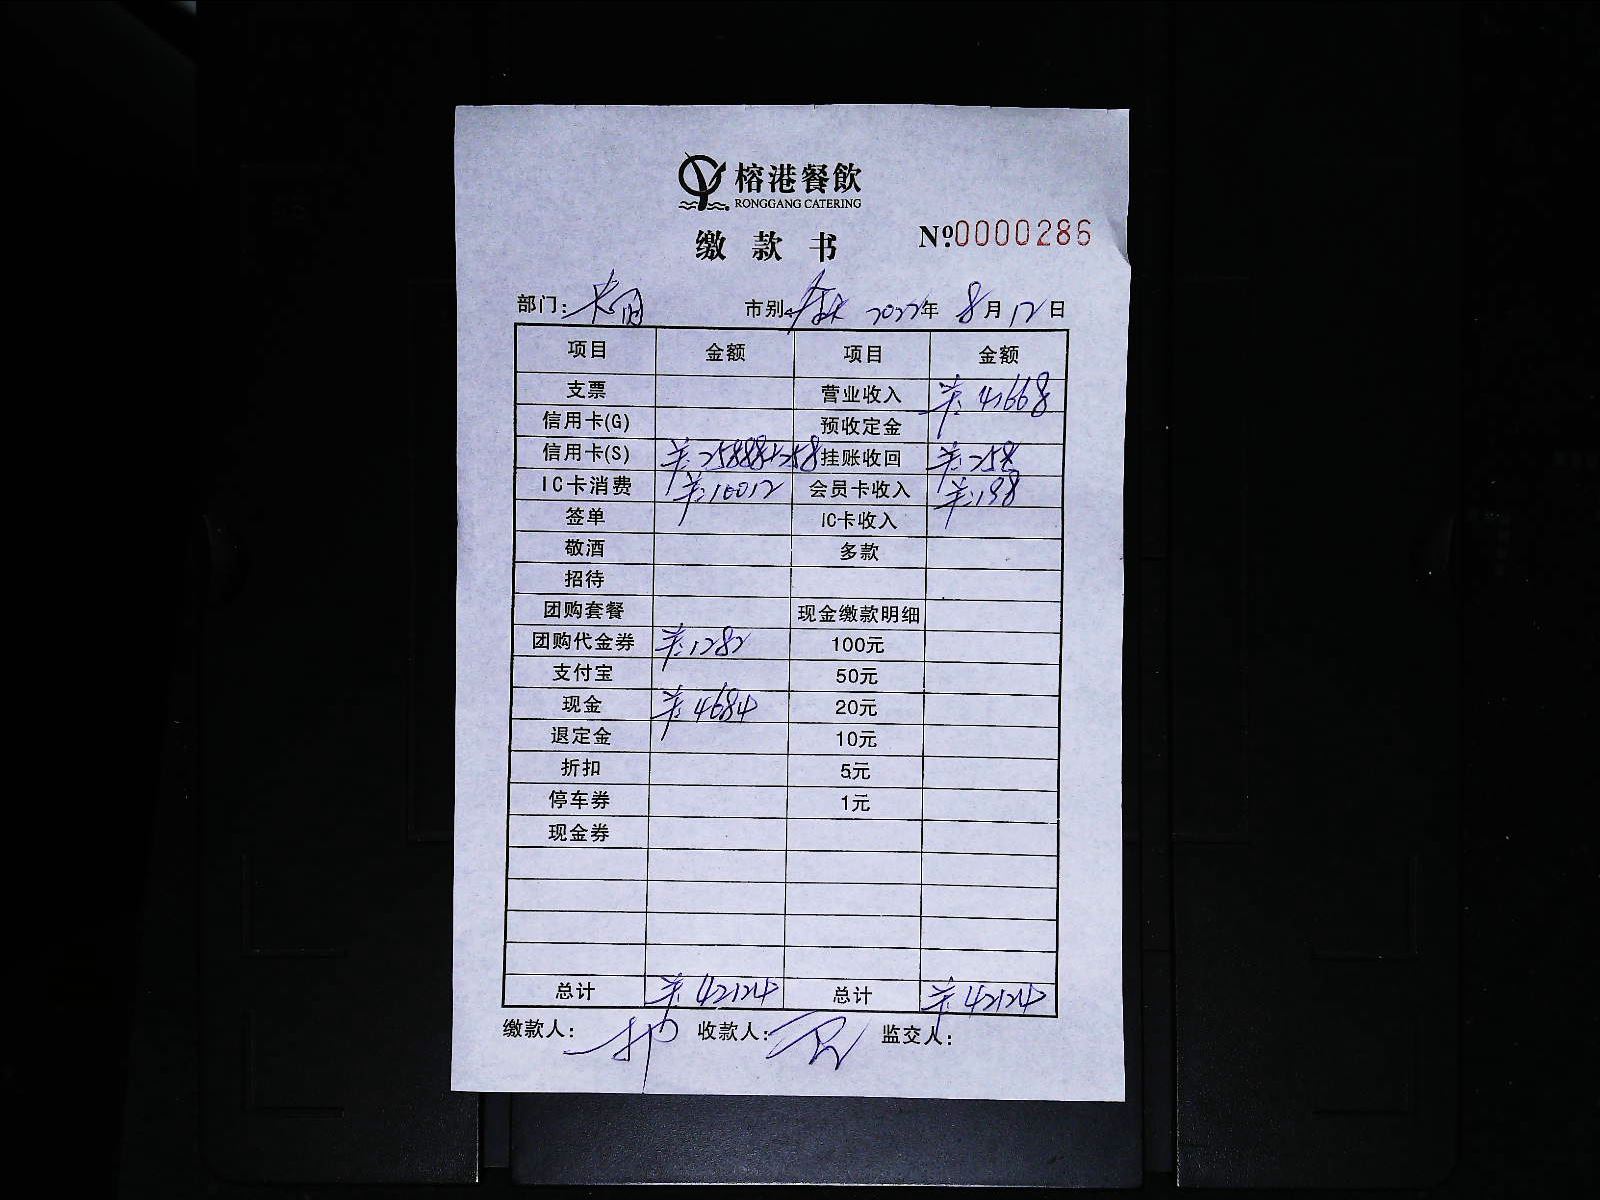 榕港餐飲
RONGGANG CATERING
缴款书
Nº0000286
部门: 市别: 2022年 8月12日
项目 金额 项目 金额
支票 营业收入 ¥:41668
信用卡(G) 预收定金
信用卡(S) ¥:25888+258 挂账收回 ¥:258
IC卡消费 ¥:10012 会员卡收入 ¥:198
签单 IC卡收入
敬酒 多款
招待
团购套餐 现金缴款明细
团购代金券 ¥:1282 100元
支付宝 50元
现金 ¥:4684 20元
退定金 10元
折扣 5元
停车券 1元
现金券
总计 ¥:42124 总计 ¥:42124
缴款人: 收款人: 监交人: